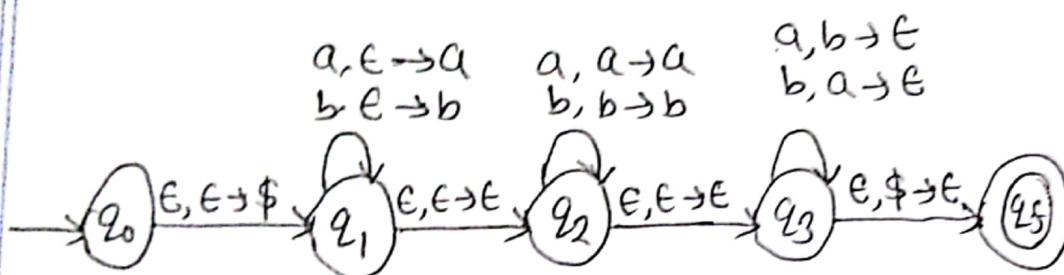 a, ϵ → a a, a → a a, b → ϵ
b ϵ → b b, b → b b, a → ϵ
q₀ ϵ, ϵ → $ q₁ ϵ, ϵ → ϵ q₂ ϵ, ϵ → ϵ q₃ ϵ, $ → ϵ, q₅